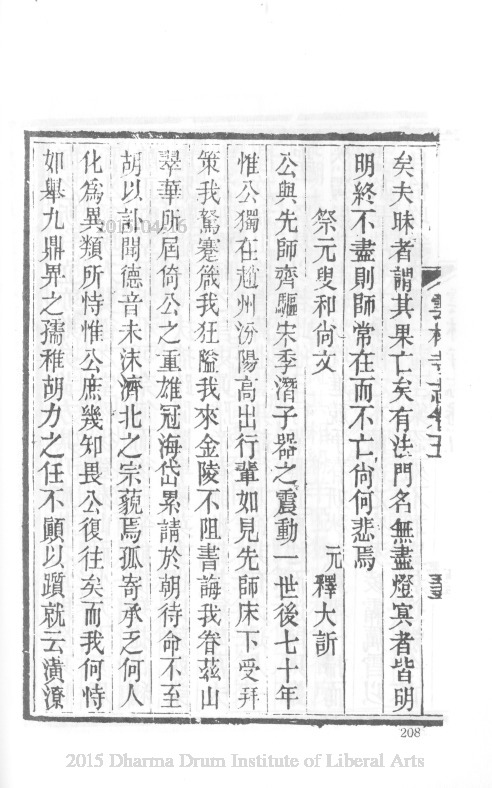 矣夫昧者謂其果亡矣有法門名無盡燈冥者皆明
明終不盡則師常在而不亡尙何悲焉
祭元叟和尙文 元 釋大訢
公與先師齊驅宋季潛子器之震動一世後七十年
惟公獨在趙州汾陽高出行輩如見先師床下受拜
策我駑蹇箴我狂隘我來金陵不阻書誨我眷茲山
翠華所屆倚公之重雄冠海岱累請於朝待命不至
胡以訃聞德音未沬濟北之宗藐焉孤寄承乏何人
化爲異類所恃惟公庶幾知畏公復往矣而我何恃
如舉九鼎畀之孺稚胡力之任不顧以躓就云潢潦
208
2015 Dharma Drum Institute of Liberal Arts